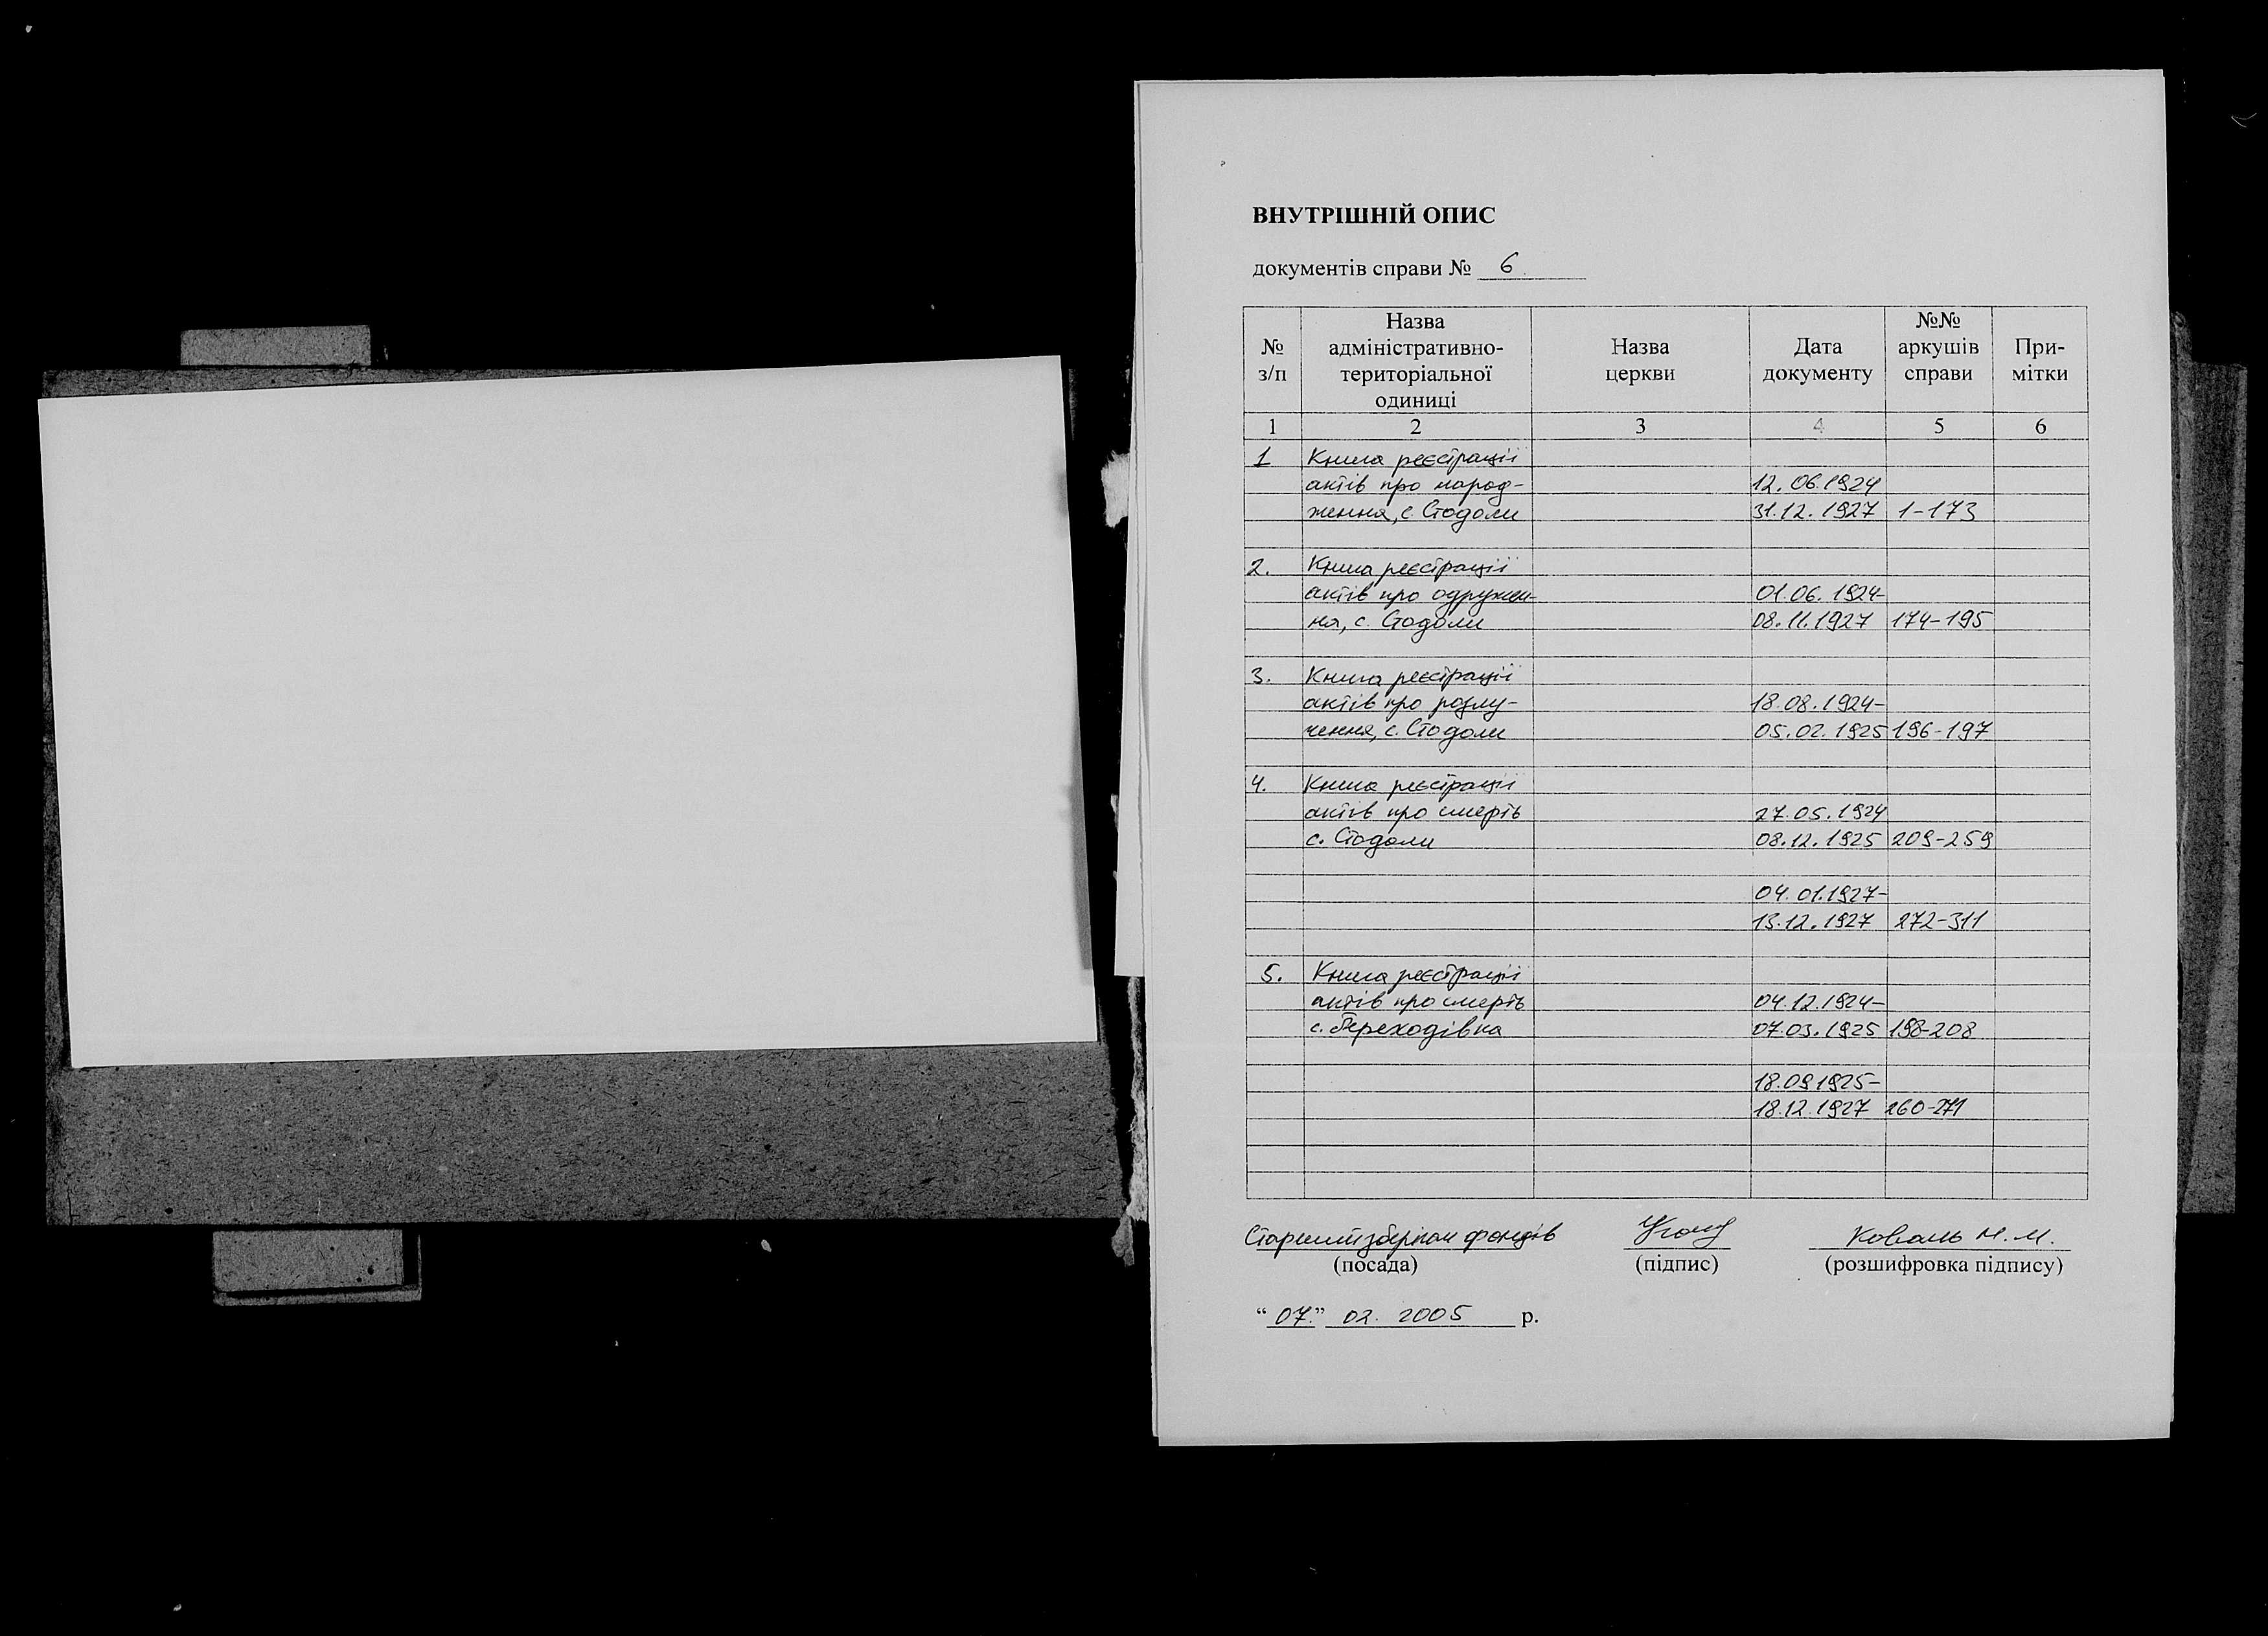 ВНУТРІШНІЙ ОПИС
документів справи № 6
№ з/п | Назва адміністративно-територіальної одиниці | Назва церкви | Дата документу | №№ аркушів справи | При-мітки
1 2 3 4 5 6
1 Книга реєстрації
актів про народ- 12.06.1924
ження, с. Стодоли 31.12.1927 1-173
2. Книга реєстрації
актів про одружен- 01.06.1924-
ня, с. Стодоли 08.11.1927 174-195
3. Книга реєстрації
актів про розлу- 18.08.1924-
чення, с. Стодоли 05.02.1925 196-197
4. Книга реєстрації
актів про смерть 27.05.1924
с. Стодоли 08.12.1925 209-259
04.01.1927-
13.12.1927 272-311
5. Книга реєстрації
актів про смерть 04.12.1924-
с. Переходівка 07.03.1925 198-208
18.09.1925-
18.12.1927 260-271
Старший зберігач фондів Коваль М.М.
(посада) (підпис) (розшифровка підпису)
“07.” 02. 2005 р.